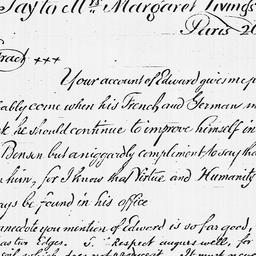 Jay to Mrs. Margaret Livings
Paris 20
tract +++
Your account of Edward gives me p
ably come when his French and German m
k he should continue to improve himself in
Benson but a niggardly complement to say tha
him, for I know that Virtue and Humanity
ays be found in his office
anecdote you mention of Edward is so far good,
as two Edges. S. Respect augurs well, for